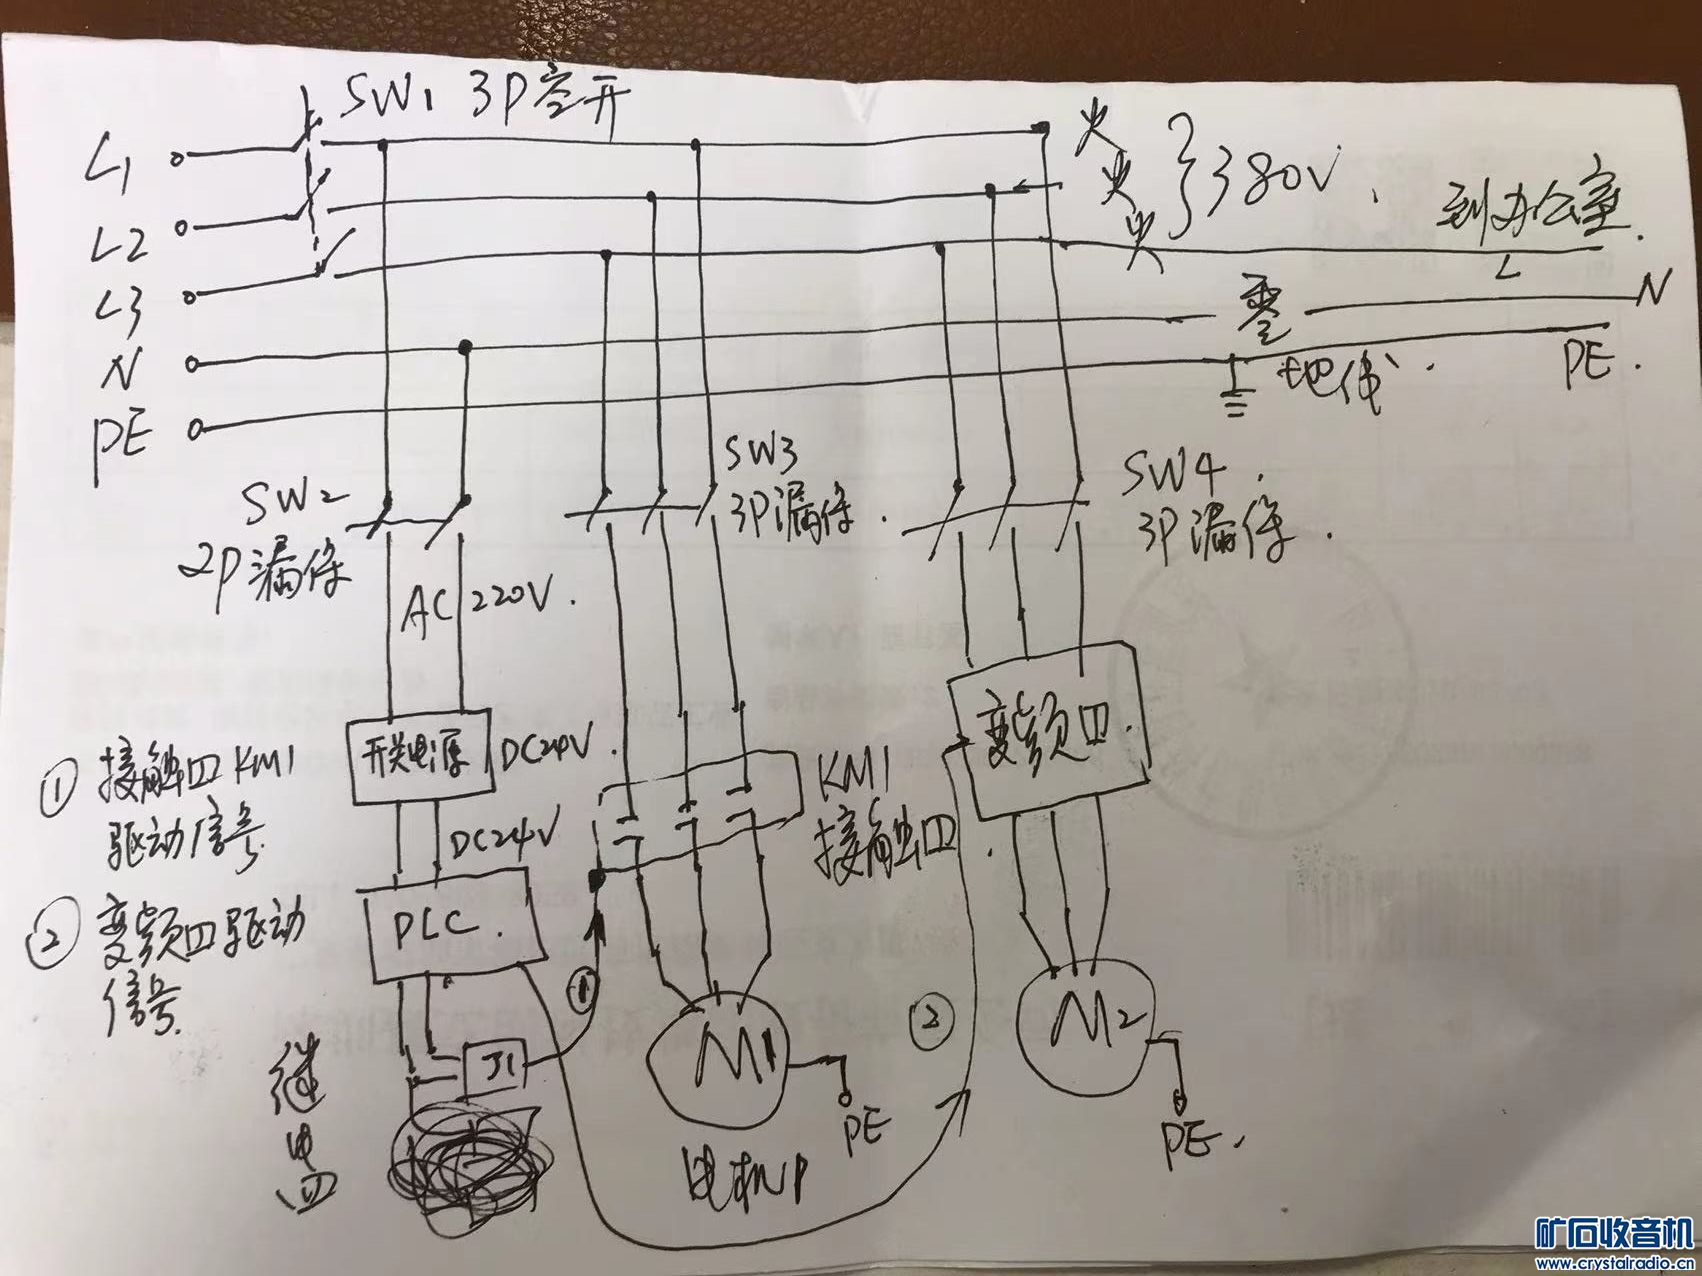 SW1 3P空开
L1
L2
L3
N
PE
火
火
火
380V
到办公室
L
零
N
地保
PE
SW2
2P漏保
AC 220V
SW3
3P漏保
SW4
3P漏保
开关电源
DC24V
DC24V
PLC
J1
继电四
① 接触四KM1
驱动信号
② 变频四驱动
信号
KM1
接触四
变频四
①
②
M1
PE
电机1
M2
PE
矿石收音机
www.crystalradio.cn